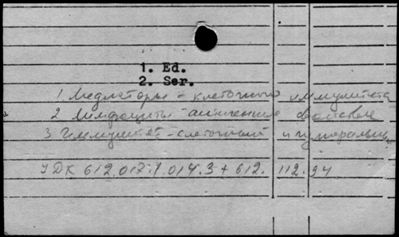 1. Ed.
2. Ser.
1 Медиаторы - клеточного иммунитета
2 Лимфоциты - антигенные свойства
3 Иммунитет - клеточный и гуморальн.
УДК 612.017.1.014.3 + 612.112.94